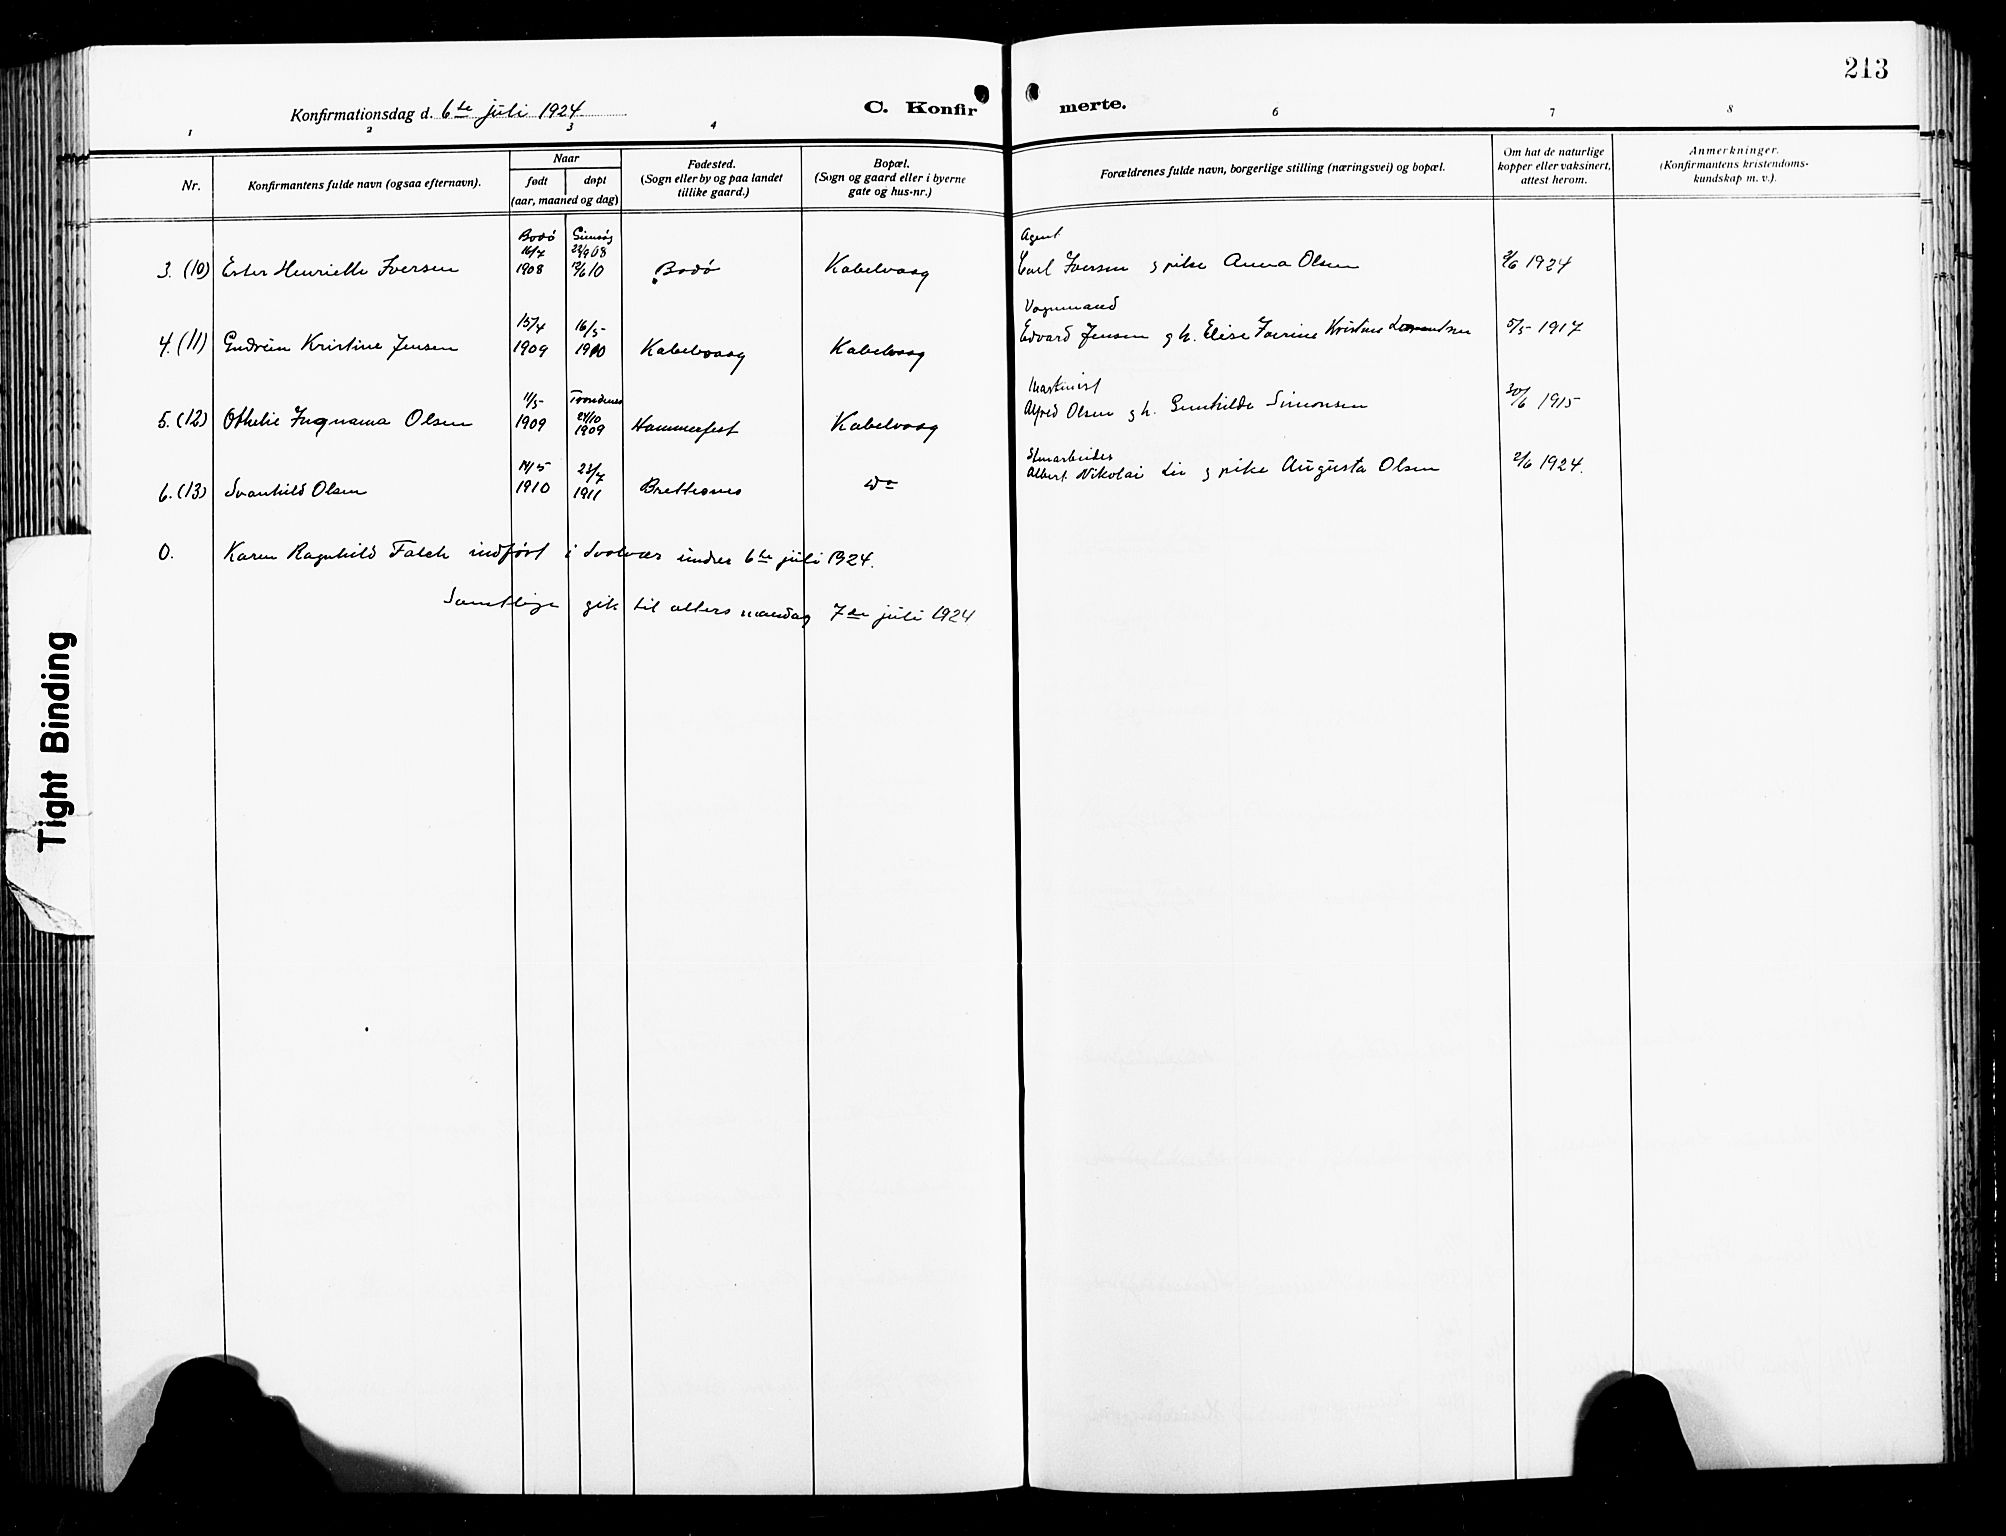 213
Konfirmationsdag d. 6te juli 1924.
C. Konfirmerte.
1 2 3 4 6 7 8
Nr.
Konfirmantens fulde navn (ogsaa efternavn).
Naar
født døpt
(aar, maaned og dag)
Fødested.
(Sogn eller by og paa landet
tillike gaard.)
Bopæl.
(Sogn og gaard eller i byerne
gate og hus-nr.)
Forældrenes fulde navn, borgerlige stilling (næringsvei) og bopæl.
Om hat de naturlige
kopper eller vaksinert,
attest herom.
Anmerkninger.
(Konfirmantens kristendoms-
kundskap m. v.).
Bodø Gimsøy Agent
16/7 22/9 08
3. (10) Ester Henriette Iversen 1908 12/6 10 Bodø Kabelvaag Carl Iversen g pike Anna Olsen 2/6 1924
15/4 16/5 Vognmand
4. (11) Gudrun Kristine Jensen 1909 1910 Kabelvaag Kabelvaag Edvard Jensen g h. Elise Kristine 5/5 1917
11/5 Trondenes Maskinist
5. (12) Othelie Olsen 1909 24/10 1909 Hammerfest Kabelvaag Alfred Olsen g h. Gunhilde Simonsen 30/6 1915
14/5 23/7 Stenarbeider
6. (13) Svanhild Olsen 1910 1911 Brettesnes do Albert Nikolai Lie g pike Augusta Olsen 2/6 1924.
0. Karen Ragnhild Falch indført i Svolvær under 6te juli 1924.
Samtlige gik til alters mandag 7de juli 1924
Tight Binding